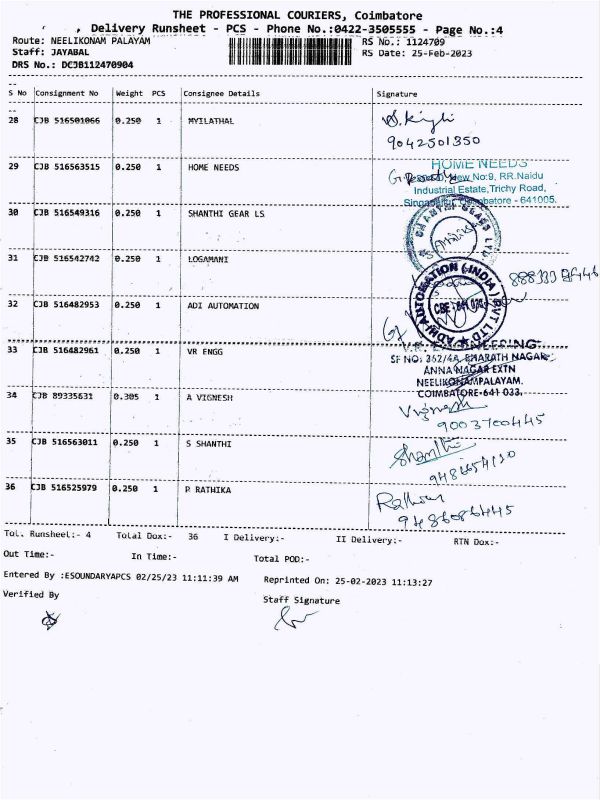 THE PROFESSIONAL COURIERS, Coimbatore
, Delivery Runsheet - PCS - Phone No.:0422-3505555 - Page No.:4
Route: NEELIKONAM PALAYAM
RS No.: 1124709
Staff: JAYABAL
RS Date: 25-Feb-2023
DRS No.: DCJB112470904
S No Consignment No Weight PCS Consignee Details Signature
28 CJB 516501066 0.250 1 MYILATHAL
9042501350
29 CJB 516563515 0.250 1 HOME NEEDS
HOME NEEDS
New No:9, RR.Naidu
Industrial Estate,Trichy Road,
Coimbatore - 641005.
30 CJB 516549316 0.250 1 SHANTHI GEAR LS
31 CJB 516542742 0.250 1 LOGAMANI
32 CJB 516482953 0.250 1 ADI AUTOMATION
ADI AUTOMATION (INDIA) PVT LTD
33 CJB 516482961 0.250 1 VR ENGG
SF NO: 362/4A, BHARATH NAGAR
ANNA NAGAR EXTN
NEELIKONAMPALAYAM.
COIMBATORE-641 033.
34 CJB 89335631 0.305 1 A VIGNESH
Vignesh
9003700445
35 CJB 516563011 0.250 1 S SHANTHI
Shanthi
36 CJB 516525979 0.250 1 P RATHIKA
Tot. Runsheet:- 4 Total Dox:- 36 I Delivery:- II Delivery:- RTN Dox:-
Out Time:- In Time:- Total POD:-
Entered By :ESOUNDARYAPCS 02/25/23 11:11:39 AM Reprinted On: 25-02-2023 11:13:27
Verified By Staff Signature